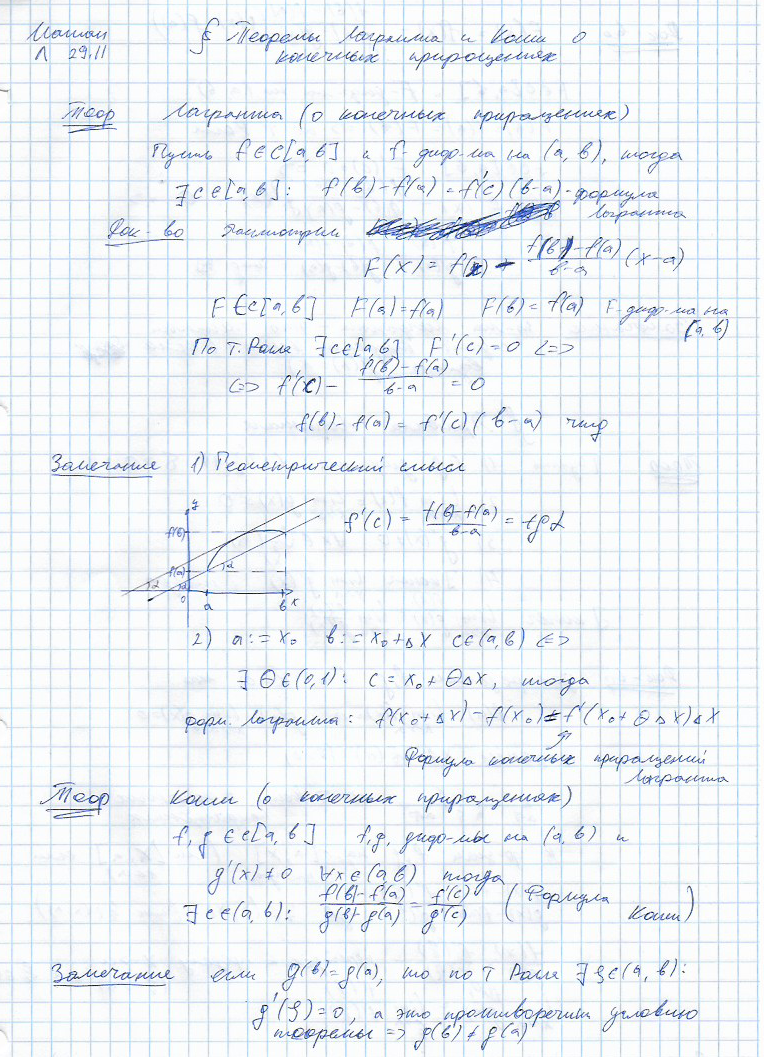 Матан § Теоремы Лагранжа и Коши о
Л 29.11 конечных приращениях
Теор Лагранжа (о конечных приращениях)
Пусть f∈C[a,b] и f- диф-ма на (a,b), тогда
∃c∈[a,b]: f(b)-f(a)=f'(c)(b-a)-формула
Лагранжа
Док-во Рассмотрим
F(x) = f(x) - (f(b)-f(a))/(b-a) (x-a)
F∈C[a,b] F(a)=f(a) F(b)=f(a) F-диф-ма на
(a,b)
По т. Ролля ∃c∈[a,b] F'(c)=0 <=>
<=> f'(c) - (f(b)-f(a))/(b-a) = 0
f(b)-f(a) = f'(c)(b-a) чтд
Замечание 1) Геометрический смысл
f'(c) = (f(b)-f(a))/(b-a) = tg α
y
f(b)
f(a)
α
α
α
0 a b x
2) a:=x₀ b:=x₀+Δx c∈(a,b) <=>
∃ Θ∈(0,1): c=x₀+ΘΔx, тогда
форм. Лагранжа: f(x₀+Δx)-f(x₀)=f'(x₀+ΘΔx)Δx
Формула конечных приращений
Лагранжа
Теор Коши (о конечных приращениях)
f,g∈C[a,b] f,g, диф-мы на (a,b) и
g'(x)≠0 ∀x∈(a,b) тогда
∃c∈(a,b): (f(b)-f(a))/(g(b)-g(a)) = f'(c)/g'(c) (Формула
Коши)
Замечание если g(b)=g(a), то по т Ролля ∃ξ∈(a,b):
g'(ξ)=0, а это противоречит условию
теоремы => g(b)≠g(a)